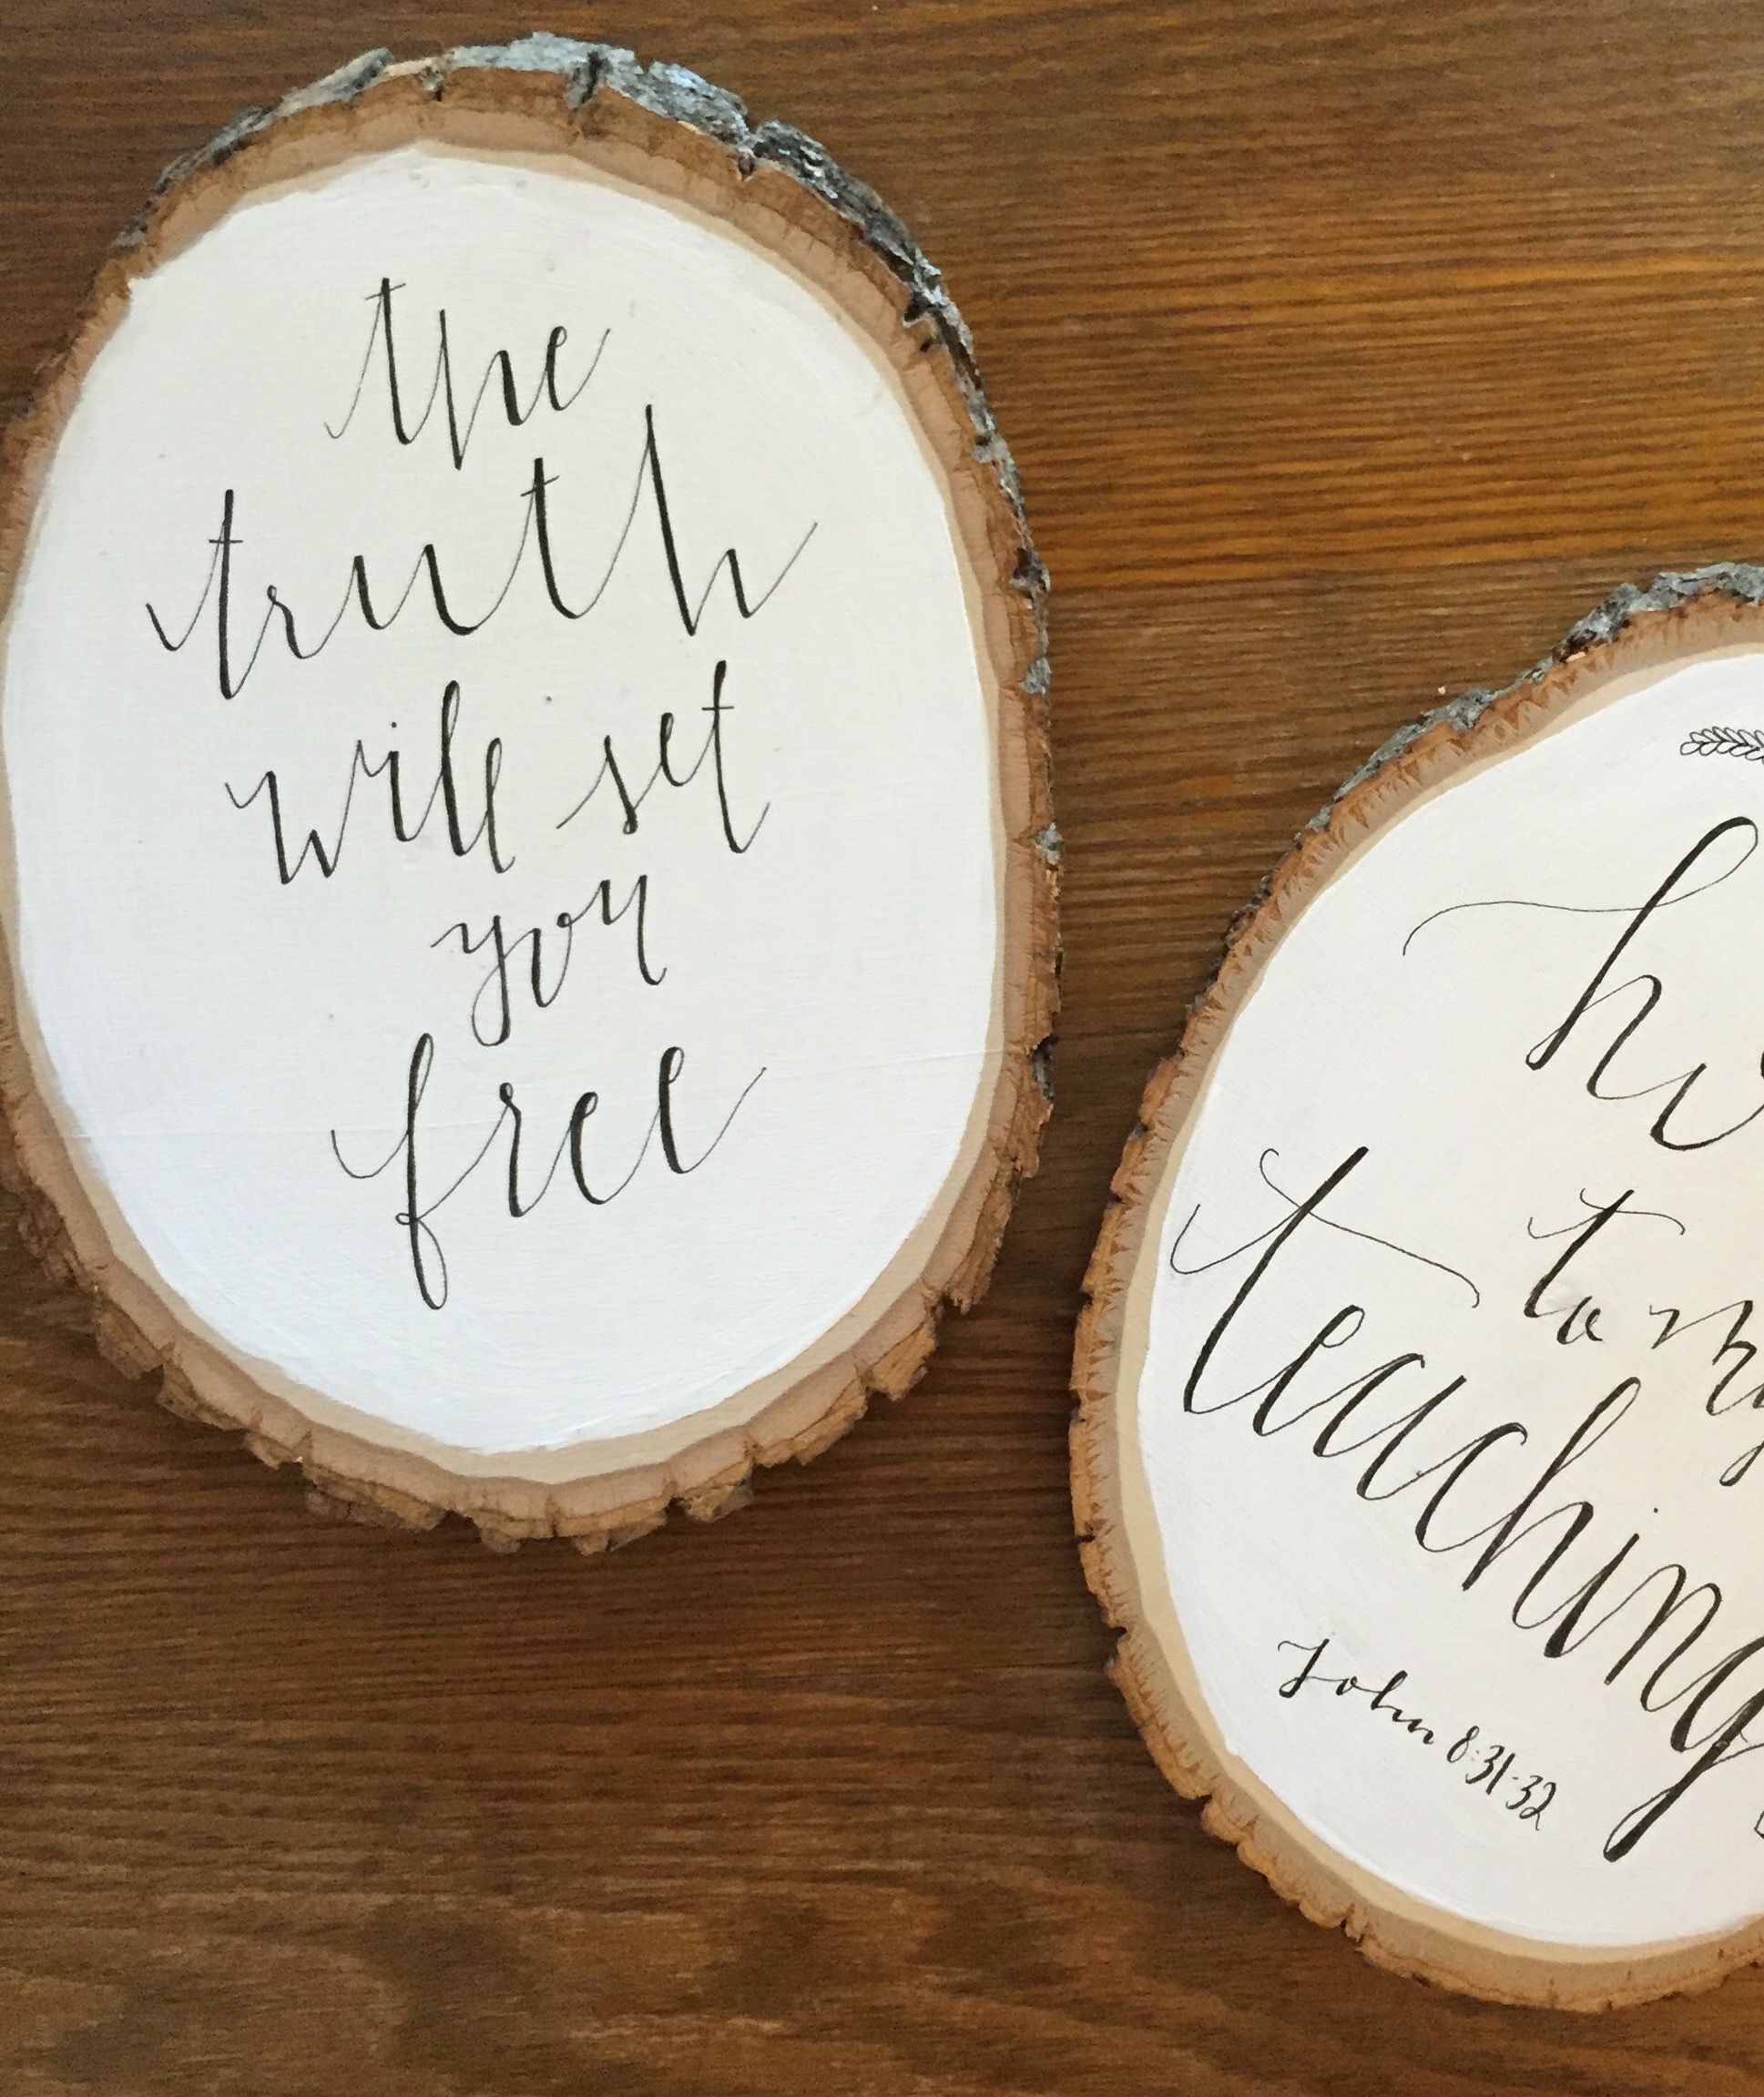 the
truth
will set
you
free
to my
teaching
John 8:31-32